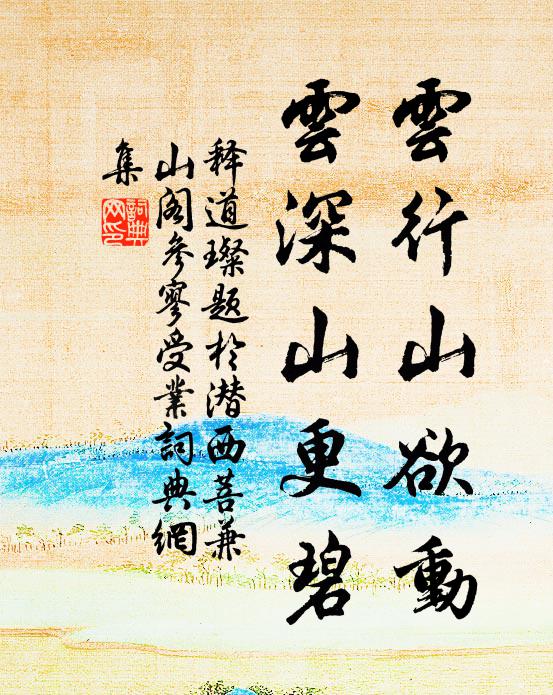 雲行山欲動
雲深山更碧
释道璨題於潜西菩兼
山阁參寥受業詞典網
集
詞典
网印